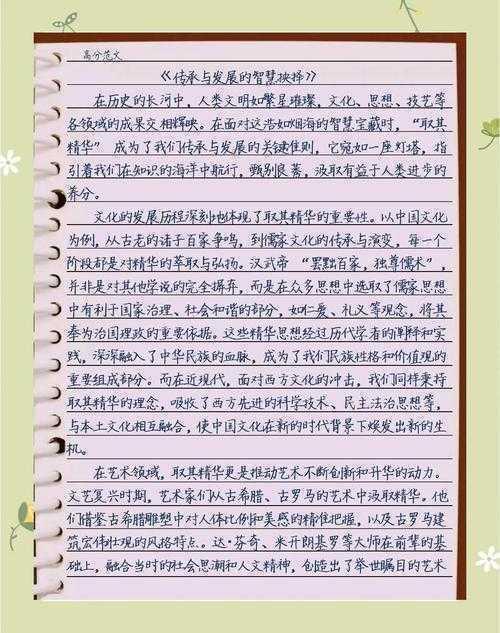 高分范文
《传承与发展的智慧抉择》
在历史的长河中，人类文明如繁星璀璨，文化、思想、技艺等
各领域的成果交相辉映。在面对这浩如烟海的智慧宝藏时，“取其
精华”成为了我们传承与发展的关键准则，它宛如一座灯塔，指
引着我们在知识的海洋中航行，甄别良莠，汲取有益于人类进步的
养分。
文化的发展历程深刻地体现了取其精华的重要性。以中国文化
为例，从古老的诸子百家争鸣，到儒家文化的传承与演变，每一个
阶段都是对精华的萃取与弘扬。汉武帝“罢黜百家，独尊儒术”，
并非是对其他学说的完全摒弃，而是在众多思想中选取了儒家思想
中有利于国家治理、社会和谐的部分，如仁爱、礼义等观念，将其
奉为治国理政的重要依据。这些精华思想经过历代学者的阐释和实
践，深深融入了中华民族的血脉，成为了我们民族性格和价值观的
重要组成部分。而在近现代，面对西方文化的冲击，我们同样秉持
取其精华的理念，吸收了西方先进的科学技术、民主法治思想等，
与本土文化相互融合，使中国文化在新的时代背景下焕发出新的生
机。
在艺术领域，取其精华更是推动艺术不断创新和升华的动力。
文艺复兴时期，艺术家们从古希腊、古罗马的艺术中汲取精华。他
们借鉴古希腊雕塑中对人体比例和美感的精准把握，以及古罗马建
筑宏伟壮观的风格特点。达·芬奇、米开朗基罗等大师在前辈的基
础上，融合当时的社会思潮和人文精神，创造出了举世瞩目的艺术